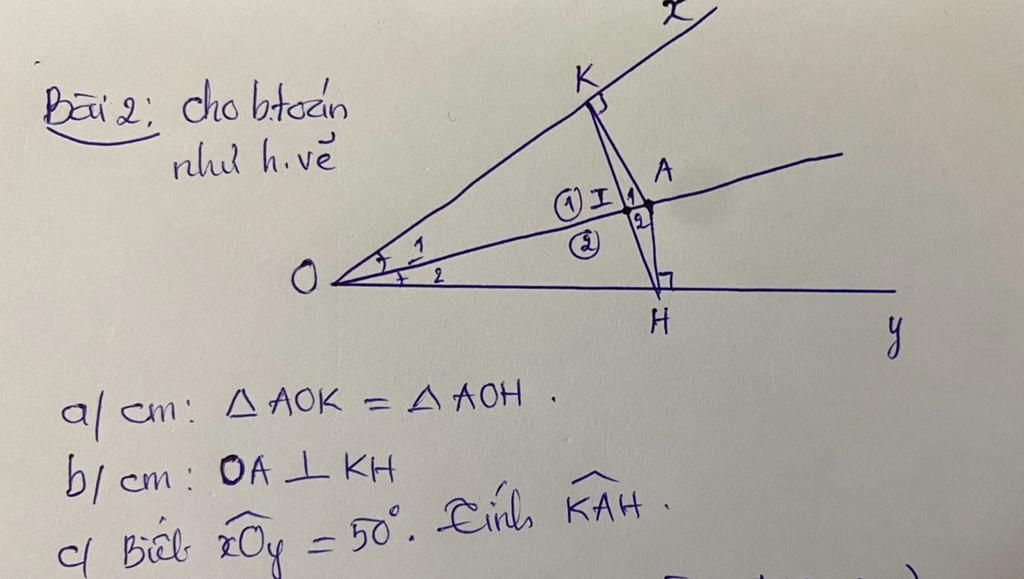 Bài 2: cho b.toán
như h.vẽ
x
K
A
① I 1
② 2
1
2
O
H
y
a/ cm: △ AOK = △ AOH .
b/ cm: OA ⊥ KH
c/ Biết x̂Oy = 50°. Tính K̂AH .